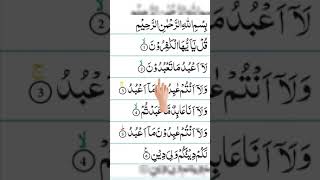 بِسْمِ اللهِ الرَّحْمٰنِ الرَّحِيْمِ
قُلْ يٰۤاَيُّهَا الْكٰفِرُوْنَ ۙ ١
لَاۤ اَعْبُدُ مَا تَعْبُدُوْنَ ۙ ٢
وَلَاۤ اَنْتُمْ عٰبِدُوْنَ مَاۤ اَعْبُدُ ۚ ٣
وَلَاۤ اَنَا عَابِدٌ مَّا عَبَدْتُّمْ ۙ ٤
وَلَاۤ اَنْتُمْ عٰبِدُوْنَ مَاۤ اَعْبُدُ ؕ ٥
لَكُمْ دِيْنُكُمْ وَلِيَ دِيْنِ ٦